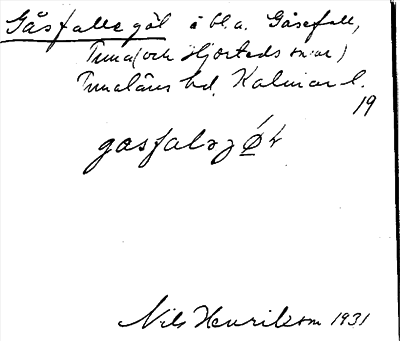 Gåsfalle göl å bl.a. Gåsefall,
Tuna (och Hjorteds snar)
Tunaläns hd. Kalmar l.
19
gasfaləj
Nils Henrikson 1931